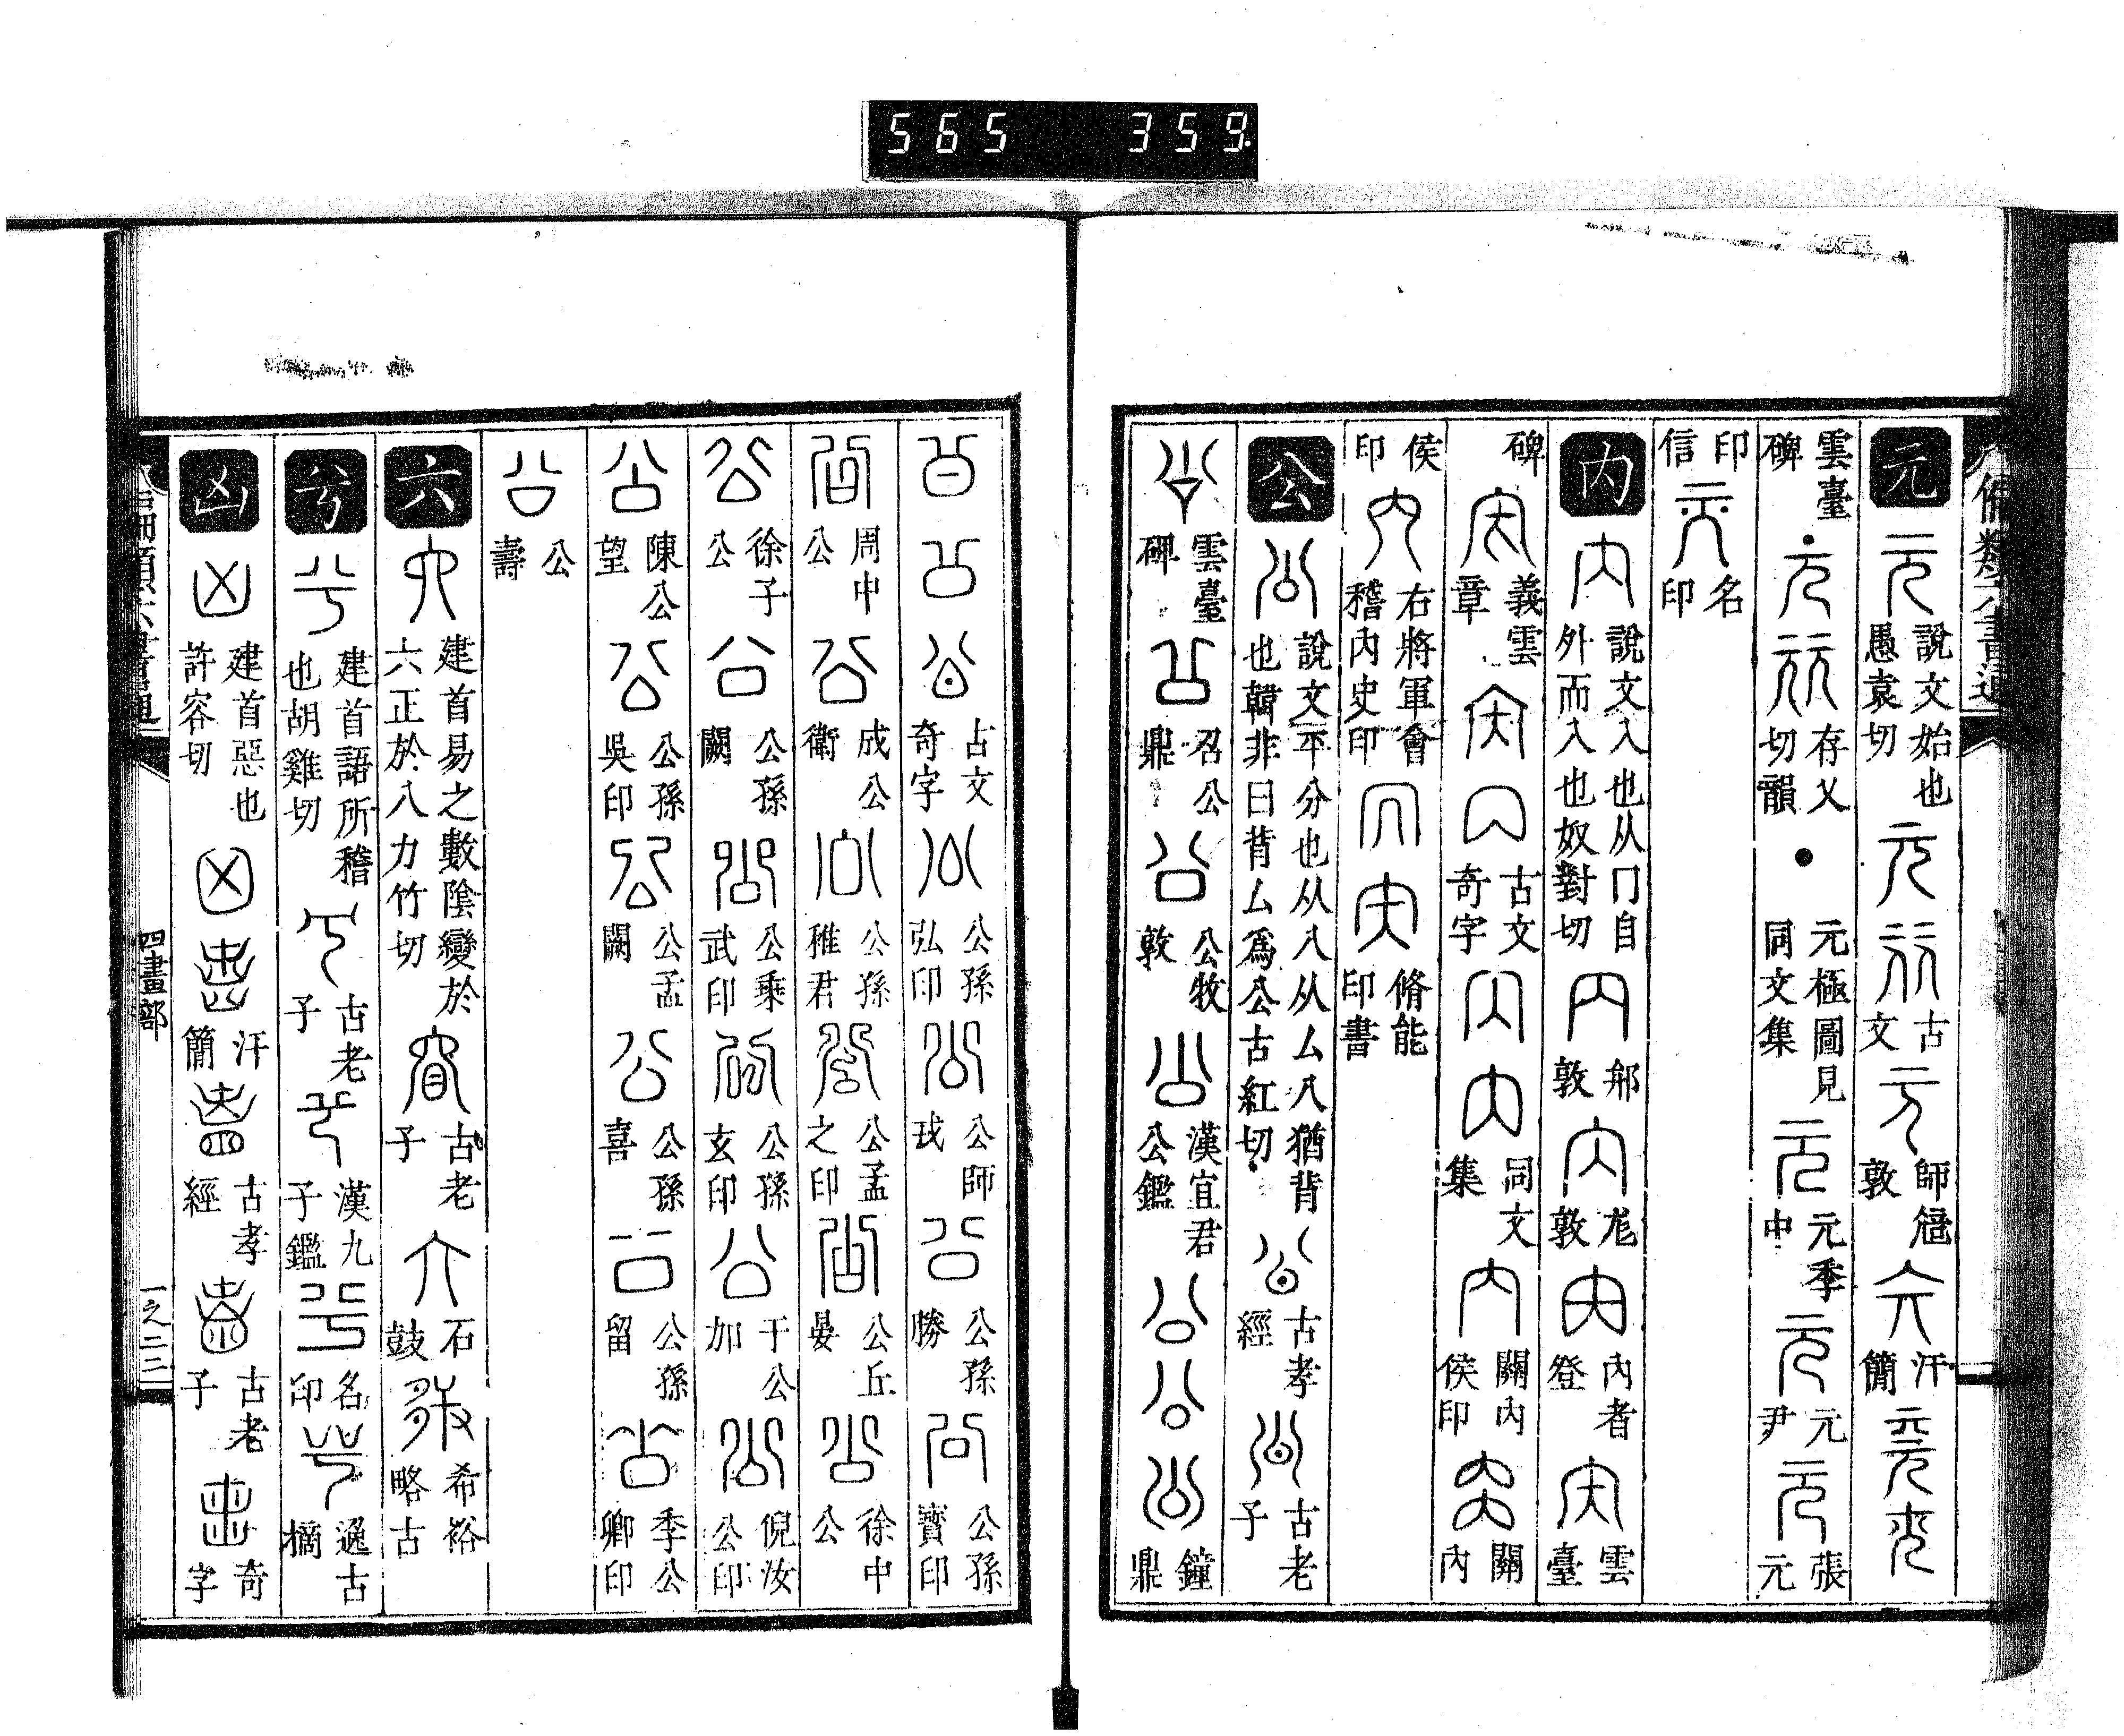 565 359
元 說文始也愚袁切 古文 師㝨敦 汗簡
雲臺碑 存乂切韻 ● 元極圖見同文集 元季中 元尹 張元
印信 名印
內 說文入也从冂自外而入也奴對切 䢵敦 尨敦 內者登 雲臺
碑 義雲章 古文奇字 同文集 關內侯印 關內
侯印 右將軍會稽內史印 脩能印書
公 說文平分也从八从厶八猶背也韓非曰背厶爲公古紅切 古孝經 古老子
雲臺碑 召公鼎 公牧敦 漢宜君公鑑 鐘鼎
古文奇字 公孫弘印 公師㺷 公孫勝 公孫寶印
周中公 成公衛 公孫稚君 公孟之印 公丘晏 徐中公
徐子公 公孫闕 公乘武印 公孫玄印 干公加 倪汝公印
陳公望 公孫吳印 公孟闕 公孫喜 公孫留 季公卿印
公壽
六 建首易之數陰變於六正於八力竹切 古老子 石鼓 希裕略古
兮 建首語所稽也胡雞切 古老子 漢九子鑑 名印 逸古摘
凶 建首惡也許容切 汗簡 古孝經 古老子 奇字
四畫部 一之二三